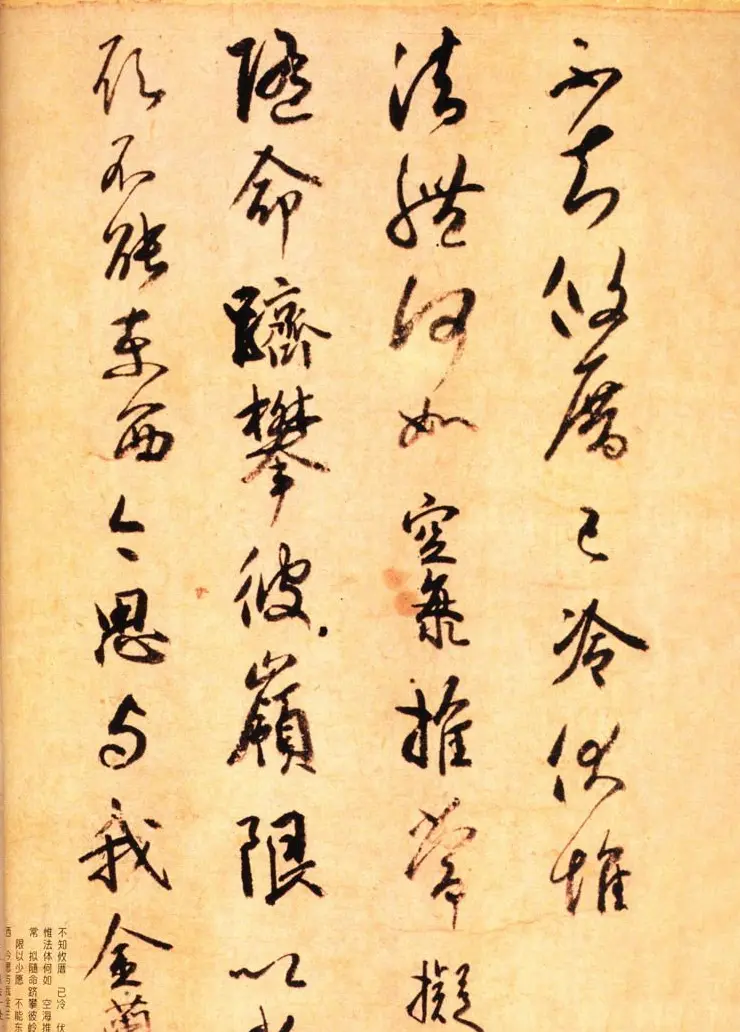 不知攸厝已冷伏惟
法體何如空海推常擬
隨命躋攀彼嶺限以
願不能東西今思与我金蘭
不知攸厝 已冷 伏
惟法体何如 空海推
常 拟随命跻攀彼岭
限以少愿 不能东